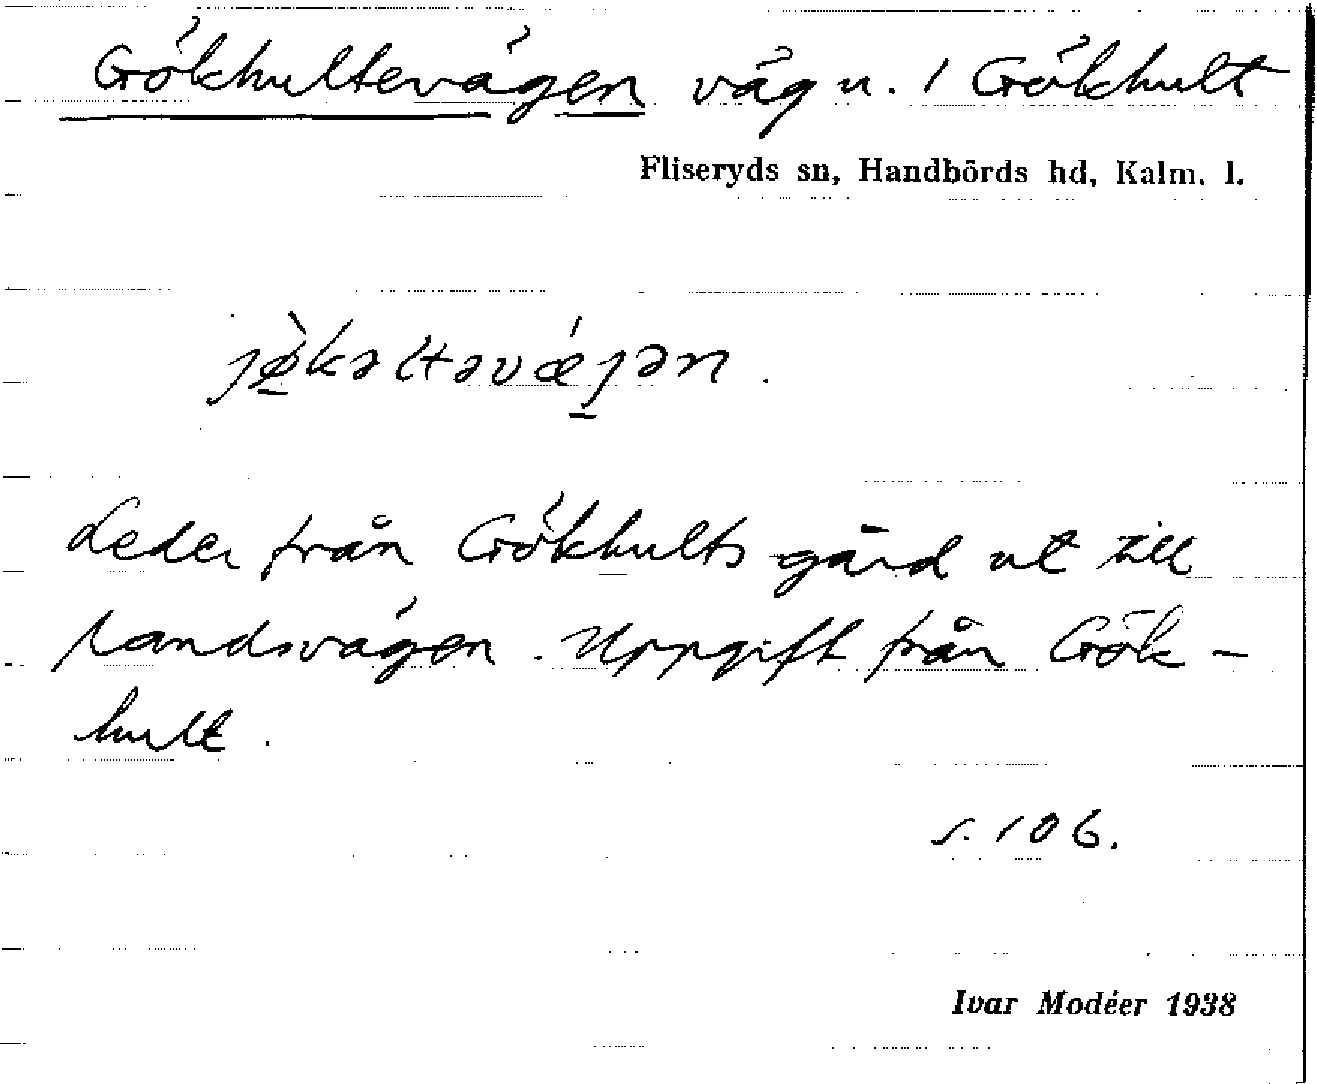 Gökhultevägen väg u. 1 Gökhult
Fliseryds sn, Handbörds hd, Kalm. l.
jø̀kəltəvǽjən.
Leder från Gökhults gård ut till
landsvägen. Uppgift från Gök-
hult.
s. 106.
Ivar Modéer 1938